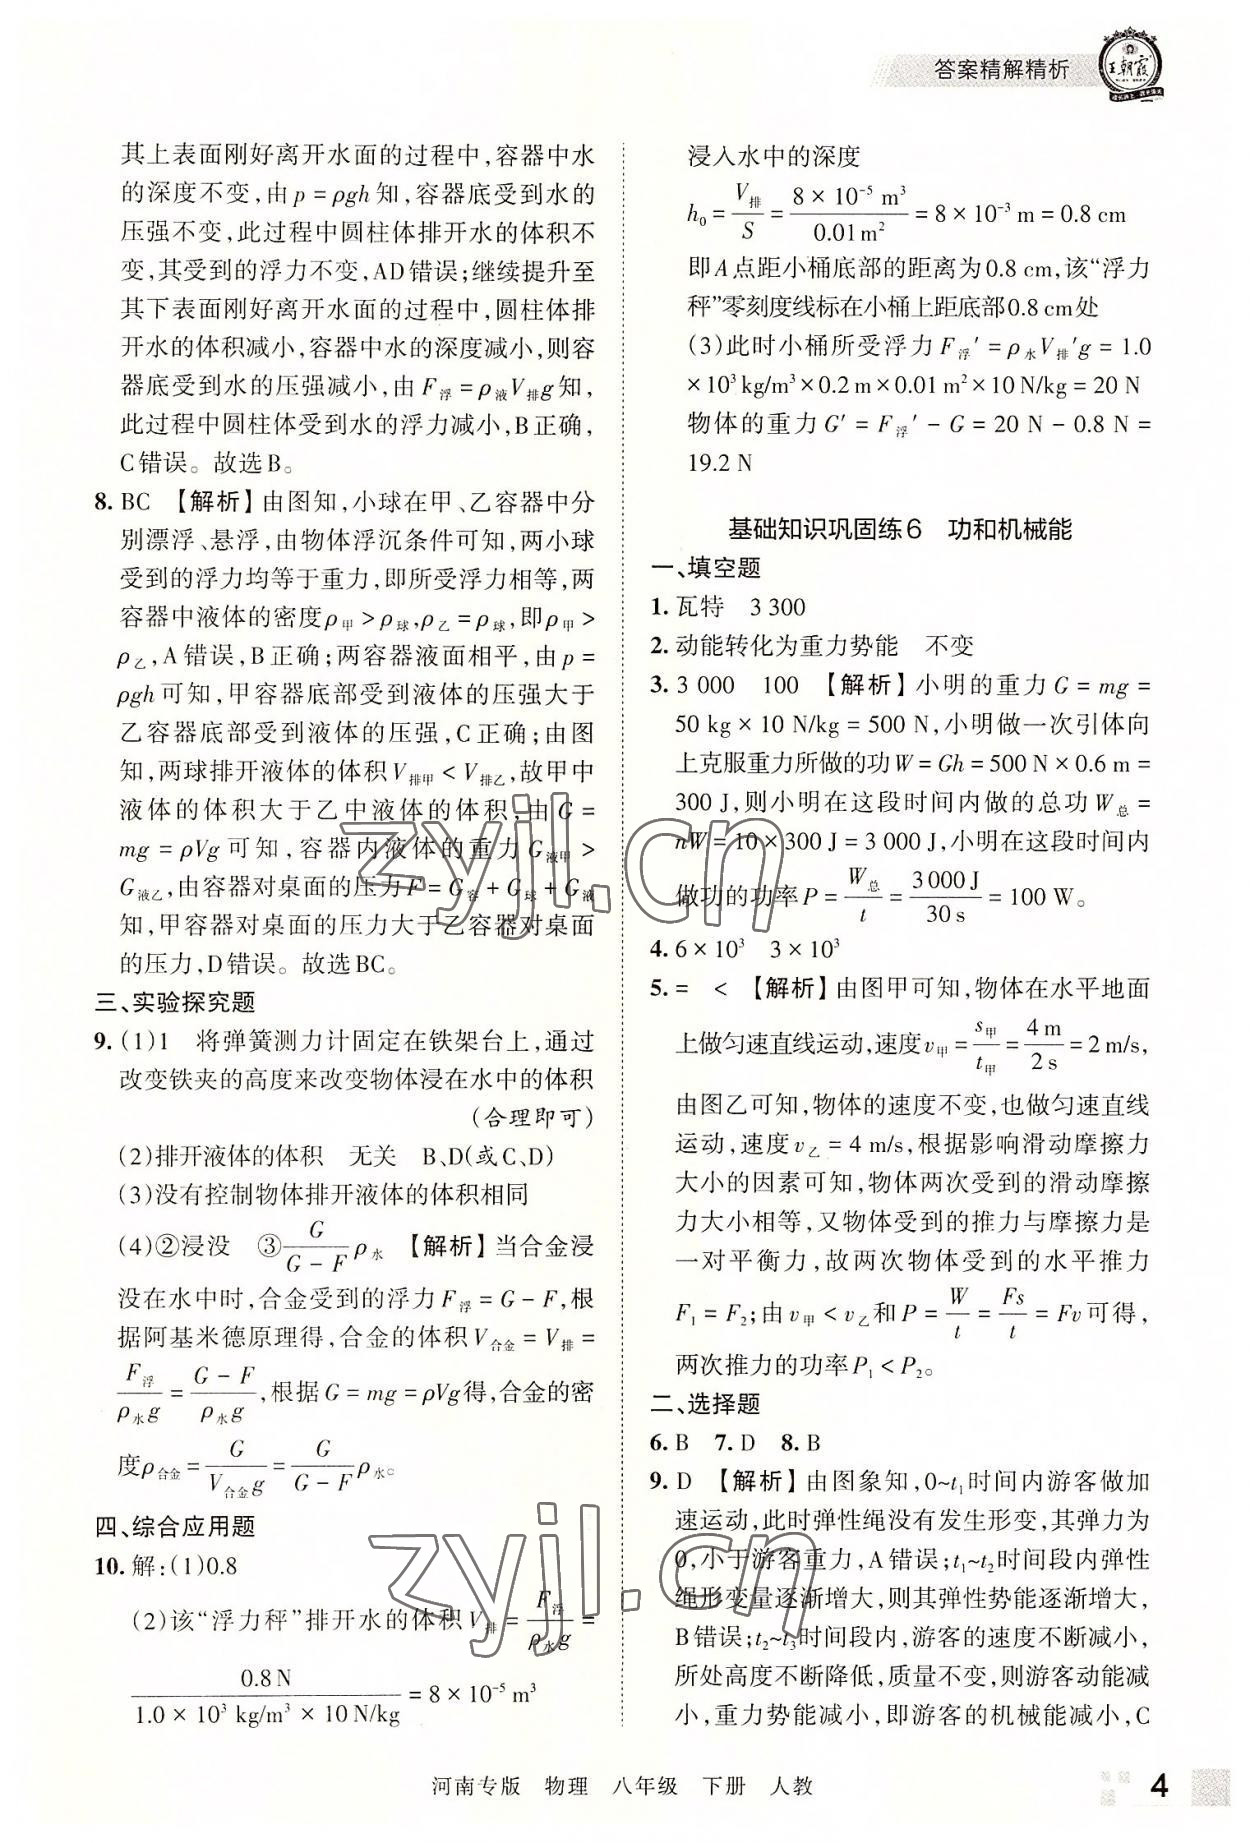 答案精解精析
王朝霞
其上表面刚好离开水面的过程中,容器中水
的深度不变,由p=ρgh知,容器底受到水的
压强不变,此过程中圆柱体排开水的体积不
变,其受到的浮力不变,AD错误;继续提升至
其下表面刚好离开水面的过程中,圆柱体排
开水的体积减小,容器中水的深度减小,则容
器底受到水的压强减小,由F浮=ρ液V排g知,
此过程中圆柱体受到水的浮力减小,B正确,
C错误。故选B。
8. BC 【解析】由图知,小球在甲、乙容器中分
别漂浮、悬浮,由物体浮沉条件可知,两小球
受到的浮力均等于重力,即所受浮力相等,两
容器中液体的密度ρ甲>ρ球,ρ乙=ρ球,即ρ甲>
ρ乙,A错误,B正确;两容器液面相平,由p=
ρgh可知,甲容器底部受到液体的压强大于
乙容器底部受到液体的压强,C正确;由图
知,两球排开液体的体积V排甲<V排乙,故甲中
液体的体积大于乙中液体的体积,由G=
mg=ρVg可知,容器内液体的重力G液甲>
G液乙,由容器对桌面的压力F=G容+G球+G液
知,甲容器对桌面的压力大于乙容器对桌面
的压力,D错误。故选BC。
三、实验探究题
9. (1)1 将弹簧测力计固定在铁架台上,通过
改变铁夹的高度来改变物体浸在水中的体积
(合理即可)
(2)排开液体的体积 无关 B、D(或C、D)
(3)没有控制物体排开液体的体积相同
(4)②浸没 ③G/(G-F)ρ水 【解析】当合金浸
没在水中时,合金受到的浮力F浮=G-F,根
据阿基米德原理得,合金的体积V合金=V排=
F浮/ρ水g=(G-F)/ρ水g,根据G=mg=ρVg得,合金的密
度ρ合金=G/V合金g=G/(G-F)ρ水。
四、综合应用题
10. 解:(1)0.8
(2)该“浮力秤”排开水的体积V排=F浮/ρ水g=
0.8 N/(1.0×10³ kg/m³×10 N/kg)=8×10⁻⁵ m³
浸入水中的深度
h₀=V排/S=8×10⁻⁵ m³/0.01 m²=8×10⁻³ m=0.8 cm
即A点距小桶底部的距离为0.8 cm,该“浮力
秤”零刻度线标在小桶上距底部0.8 cm处
(3)此时小桶所受浮力F浮′=ρ水V排′g=1.0
×10³ kg/m³×0.2 m×0.01 m²×10 N/kg=20 N
物体的重力G′=F浮′-G=20 N-0.8 N=
19.2 N
基础知识巩固练6 功和机械能
一、填空题
1. 瓦特 3 300
2. 动能转化为重力势能 不变
3. 3 000 100 【解析】小明的重力G=mg=
50 kg×10 N/kg=500 N,小明做一次引体向
上克服重力所做的功W=Gh=500 N×0.6 m=
300 J,则小明在这段时间内做的总功W总=
nW=10×300 J=3 000 J,小明在这段时间内
做功的功率P=W总/t=3 000 J/30 s=100 W。
4. 6×10³ 3×10³
5. = < 【解析】由图甲可知,物体在水平地面
上做匀速直线运动,速度v甲=s甲/t甲=4 m/2 s=2 m/s,
由图乙可知,物体的速度不变,也做匀速直线
运动,速度v乙=4 m/s,根据影响滑动摩擦力
大小的因素可知,物体两次受到的滑动摩擦
力大小相等,又物体受到的推力与摩擦力是
一对平衡力,故两次物体受到的水平推力
F₁=F₂;由v甲<v乙和P=W/t=Fs/t=Fv可得,
两次推力的功率P₁<P₂。
二、选择题
6. B 7. D 8. B
9. D 【解析】由图象知,0~t₁时间内游客做加
速运动,此时弹性绳没有发生形变,其弹力为
0,小于游客重力,A错误;t₁~t₂时间段内弹性
绳形变量逐渐增大,则其弹性势能逐渐增大,
B错误;t₂~t₃时间段内,游客的速度不断减小,
所处高度不断降低,质量不变,则游客动能减
小,重力势能减小,即游客的机械能减小,C
zyjl.cn
zyjl.cn
河南专版 物理 八年级 下册 人教
4